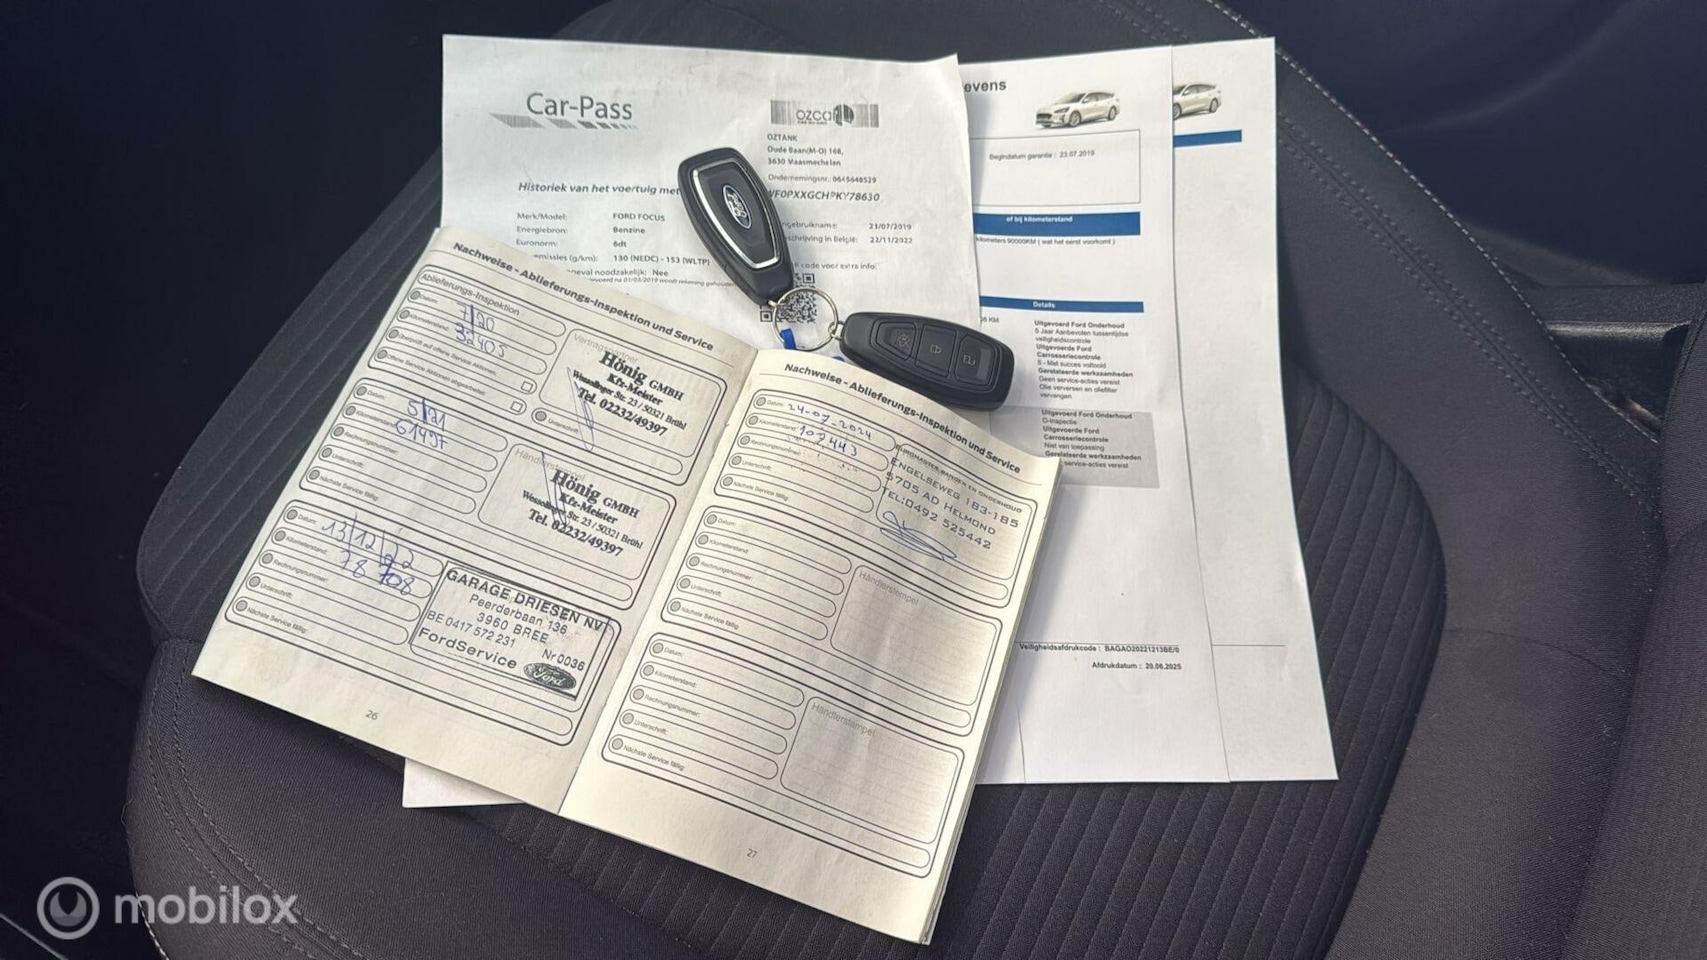 Car-Pass
ozcar
OZTANK
Oude Baan(M-O) 168,
3630 Maasmechelen
Ondernemingsnr.: 0645640529
Historiek van het voertuig met
WF0PXXGCHPKY78630
Merk/Model: FORD FOCUS
Energiebron: Benzine
Euronorm: 6dt
130 (NEDC) - 153 (WLTP)
noodzakelijk: Nee
21/07/2019
in België: 22/11/2022
code voor extra info:
evens
Begindatum garantie : 23.07.2019
of bij kilometerstand
kilometers 90000KM ( wat het eerst voorkomt )
Details
KM
Uitgevoerd Ford Onderhoud
5 Jaar Aanbevolen tussentijdse
veiligheidscontrole
Uitgevoerde Ford
Carrosseriecontrole
5 - Met succes voltooid
Gerelateerde werkzaamheden
Geen service-acties vereist
Olie verversen en oliefilter
vervangen
Uitgevoerd Ford Onderhoud
Uitgevoerde Ford
Carrosseriecontrole
Niet van toepassing
Gerelateerde werkzaamheden
service-acties vereist
Veiligheidsafdrukcode : BAGAO20221213BE/0
Afdrukdatum : 20.06.2025
Nachweise - Ablieferungs-Inspektion und Service
Ablieferungs-Inspektion
Datum: 7/20
Kilometerstand: 32405
Überprüft auf offene Service Aktionen.
Offene Service Aktionen abgearbeitet
Vertragspartner
Hönig GMBH
Kfz-Meister
Wesselinger Str. 23 / 50321 Brühl
Tel. 02232/49397
Unterschrift
Datum: 5/21
Kilometerstand: 61497
Rechnungsnummer:
Unterschrift:
Nächste Service fällig:
Händlerstempel
Hönig GMBH
Kfz-Meister
Wesselinger Str. 23 / 50321 Brühl
Tel. 02232/49397
Datum: 13/12/22
Kilometerstand: 78 708
Rechnungsnummer:
Unterschrift:
Nächste Service fällig:
GARAGE DRIESEN NV
Peerderbaan 136
3960 BREE
BE 0417 572 231
Nr 0036
FordService
Ford
26
Nachweise - Ablieferungs-Inspektion und Service
Datum: 24-07-2024
Kilometerstand: 107443
Rechnungsnummer:
Unterschrift:
Nächste Service fällig:
EUROMASTER BANDEN EN ONDERHOUD
ENGELSEWEG 183-185
5705 AD HELMOND
TEL:0492 525442
Datum:
Kilometerstand:
Rechnungsnummer:
Unterschrift:
Nächste Service fällig:
Händlerstempel
Datum:
Kilometerstand:
Rechnungsnummer:
Unterschrift:
Nächste Service fällig:
Händlerstempel
27
mobilox